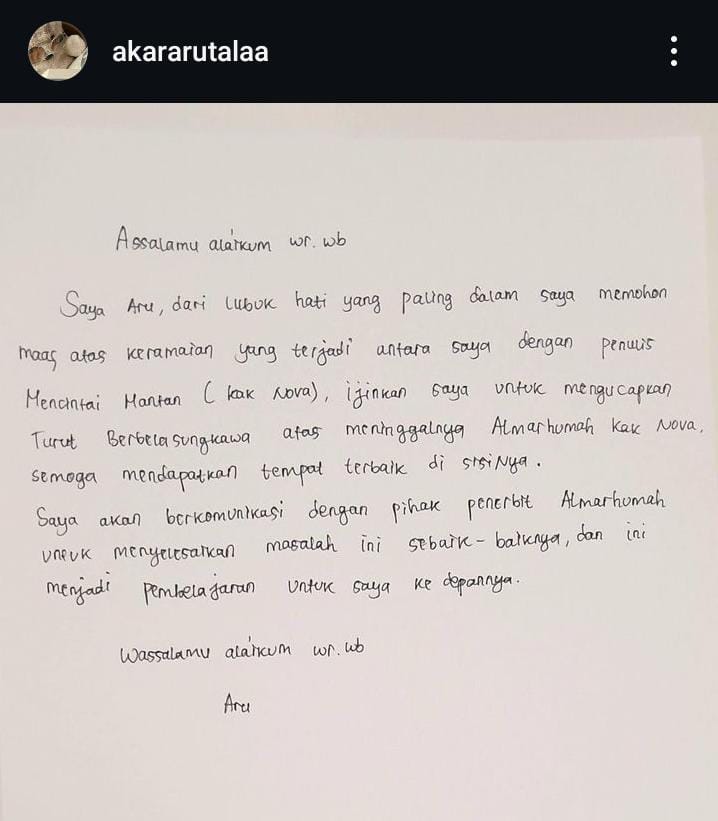 akararutalaa
Assalamu alaikum wr. wb
Saya Aru, dari lubuk hati yang paling dalam saya memohon
maaf atas keramaian yang terjadi antara saya dengan penulis
Mencintai Mantan (kak Nova), ijinkan saya untuk mengucapkan
Turut Berbelasungkawa atas meninggalnya Almarhumah kak Nova,
semoga mendapatkan tempat terbaik di sisiNya.
Saya akan berkomunikasi dengan pihak penerbit Almarhumah
untuk menyelesaikan masalah ini sebaik-baiknya, dan ini
menjadi pembelajaran untuk saya ke depannya.
Wassalamu alaikum wr. wb
Aru